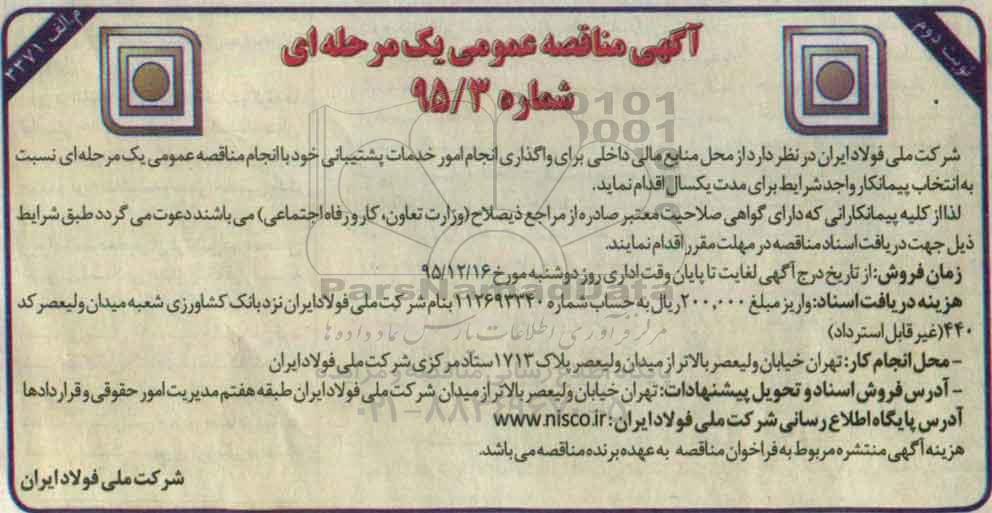 م.الف ۳۳۷۱
نوبت دوم
آگهی مناقصه عمومی یک مرحله ای
شماره ۹۵/۳
شرکت ملی فولاد ایران در نظر دارد از محل منابع مالی داخلی برای واگذاری انجام امور خدمات پشتیبانی خود با انجام مناقصه عمومی یک مرحله ای نسبت
به انتخاب پیمانکار واجد شرایط برای مدت یکسال اقدام نماید.
لذا از کلیه پیمانکارانی که دارای گواهی صلاحیت معتبر صادره از مراجع ذیصلاح (وزارت تعاون، کار و رفاه اجتماعی) می باشند دعوت می گردد طبق شرایط
ذیل جهت دریافت اسناد مناقصه در مهلت مقرر اقدام نمایند.
زمان فروش: از تاریخ درج آگهی لغایت تا پایان وقت اداری روز دوشنبه مورخ ۹۵/۱۲/۱۶
هزینه دریافت اسناد: واریز مبلغ ۲۰۰,۰۰۰ ریال به حساب شماره ۱۱۲۶۹۳۳۴۰ بنام شرکت ملی فولاد ایران نزد بانک کشاورزی شعبه میدان ولیعصر کد
۴۴۰ (غیر قابل استرداد)
– محل انجام کار: تهران خیابان ولیعصر بالاتر از میدان ولیعصر پلاک ۱۷۱۳ ستاد مرکزی شرکت ملی فولاد ایران
– آدرس فروش اسناد و تحویل پیشنهادات: تهران خیابان ولیعصر بالاتر از میدان شرکت ملی فولاد ایران طبقه هفتم مدیریت امور حقوقی و قراردادها
آدرس پایگاه اطلاع رسانی شرکت ملی فولاد ایران: www.nisco.ir
هزینه آگهی منتشره مربوط به فراخوان مناقصه به عهده برنده مناقصه می باشد.
شرکت ملی فولاد ایران
ParsNamadData